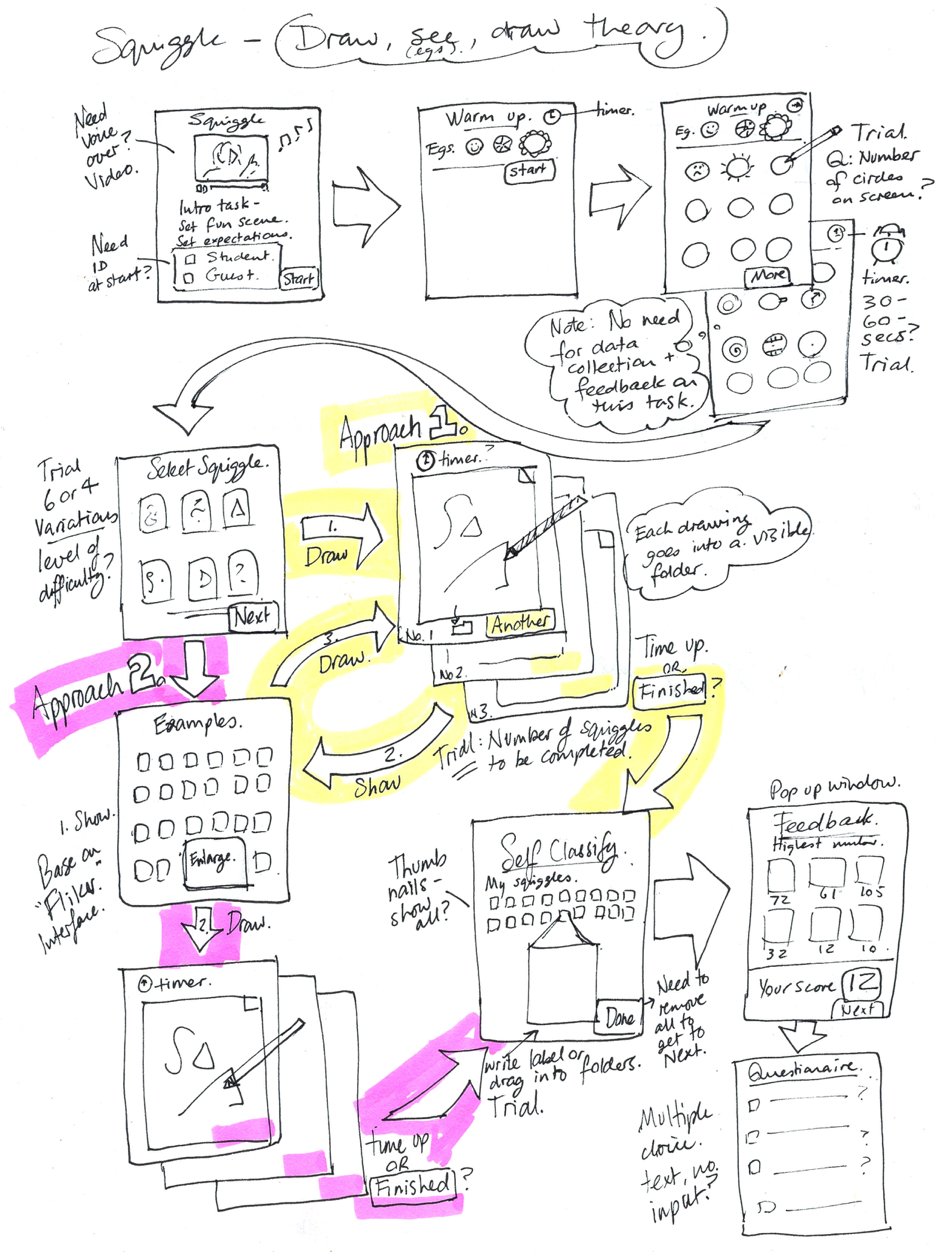 Squiggle – Draw, see, draw theory.
(egs).
Need
voice
over?
Video.
Need
ID
at start?
Squiggle
Intro task –
Set fun scene.
Set expectations.
Student.
Guest.
Start
Warm up.
timer.
Egs.
Start
Warm up
Eg.
More
Trial.
Q: Number
of circles
on screen?
timer.
30-
60-
secs?
Trial.
Note: No need
for data
collection +
feedback on
this task.
Approach 1.
Trial
6 or 4
Variations
level of
difficulty?
Select Squiggle.
Next
1.
Draw
timer.?
No. 1
Another
No 2.
N3.
Each drawing
goes into a visible
folder.
3.
Draw.
2.
Show
Time up.
OR
Finished?
Trial: Number of squiggles
to be completed.
Approach 2.
Examples.
Enlarge.
1. Show.
Base on
"Flikr.
Interface.
2. Draw.
timer.
time up
OR
Finished?
Thumb
nails –
show
all?
Self Classify.
My squiggles.
Done
write label or
drag into folders.
Trial.
Need to
remove
all to
get to
Next.
Pop up window.
Feedback.
Highest number.
72 61 105
32 12 10
Your score 12
Next
Questionaire.
?
?
?
Multiple
choice.
text, no.
input?